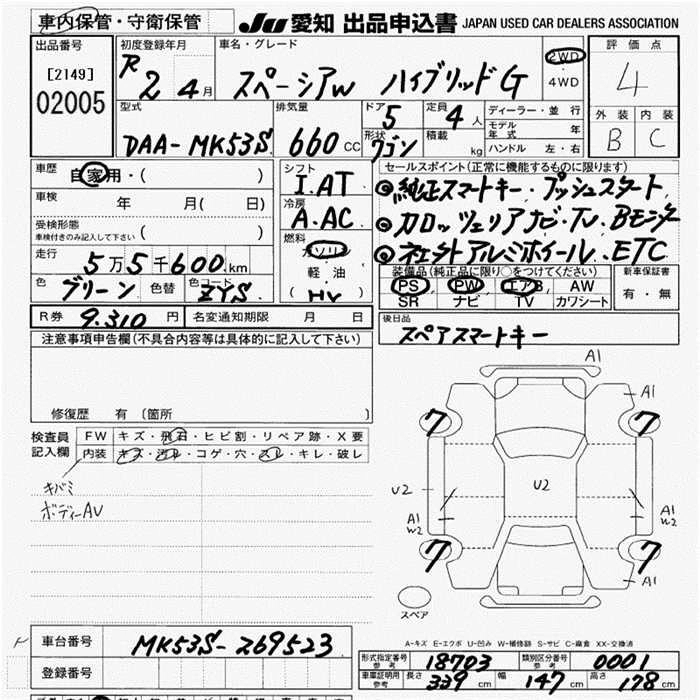 車内保管・守衛保管
JU 愛知 出品申込書 JAPAN USED CAR DEALERS ASSOCIATION
出品番号
[2149]
02005
初度登録年月
R 2 4月
車名・グレード
スペーシアW ハイブリッドG
2WD
・
4WD
評価点
4
外装 内装
B C
型式
DAA-MK53S
排気量
660 CC
ドア
5
形状
ワゴン
定員
4人
積載
kg
ディーラー・並行
モデル年式 年
ハンドル 左・右
車歴
自家用・( )
車検
年 月( 日)
受検形態
車検付きのみ記入して下さい ( )
走行
5万5千600km
色
ブリーン
色替
色コード
ZYS
シフト
I.AT
冷房
A.AC
燃料
ガソリン
軽油
(HV)
セールスポイント(正常に機能するものに限ります)
◎純正スマートキー、プッシュスタート
◎カロッツェリアナビ・TV、Bモニター
◎社外アルミホイール、ETC
装備品(純正品に限り○をつけてください)
PS PW エアB AW
SR ナビ TV カワシート
新車保証書
有・無
R券 9.310円
名変通知期限 月 日
後日品
スペアスマートキー
注意事項申告欄(不具合内容等は具体的に記入して下さい)
修復歴 有(箇所 )
検査員
記入欄
FW キズ・飛石・ヒビ割・リペア跡・X要
内装 キズ・汚レ・コゲ・穴・スレ・キレ・破レ
キバミ
ボディーAU
A1
A1
7 7
U2
U2
A1
W2
A1
W2
7 7
A1
スペア
車台番号
MK53S-269523
登録番号
A-キズ E-エクボ U-凹み W-補修跡 S-サビ C-腐食 XX-交換済
形式指定番号
参考
18703
類別区分番号
参考
0001
車庫証明用
参考
長さ 339cm 幅 147cm 高さ 178cm